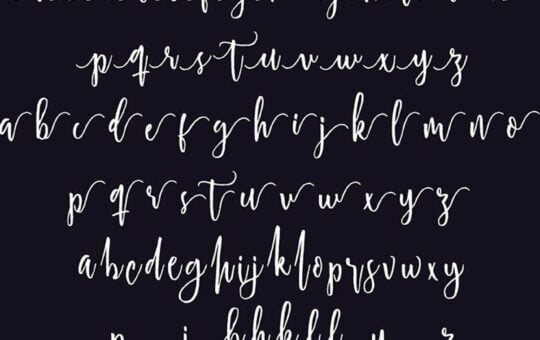 p q r s t u v w x y z
a b c d e f g h i j k l m n o
p q r s t u v w x y z
abcdeghijkloprsvwxy